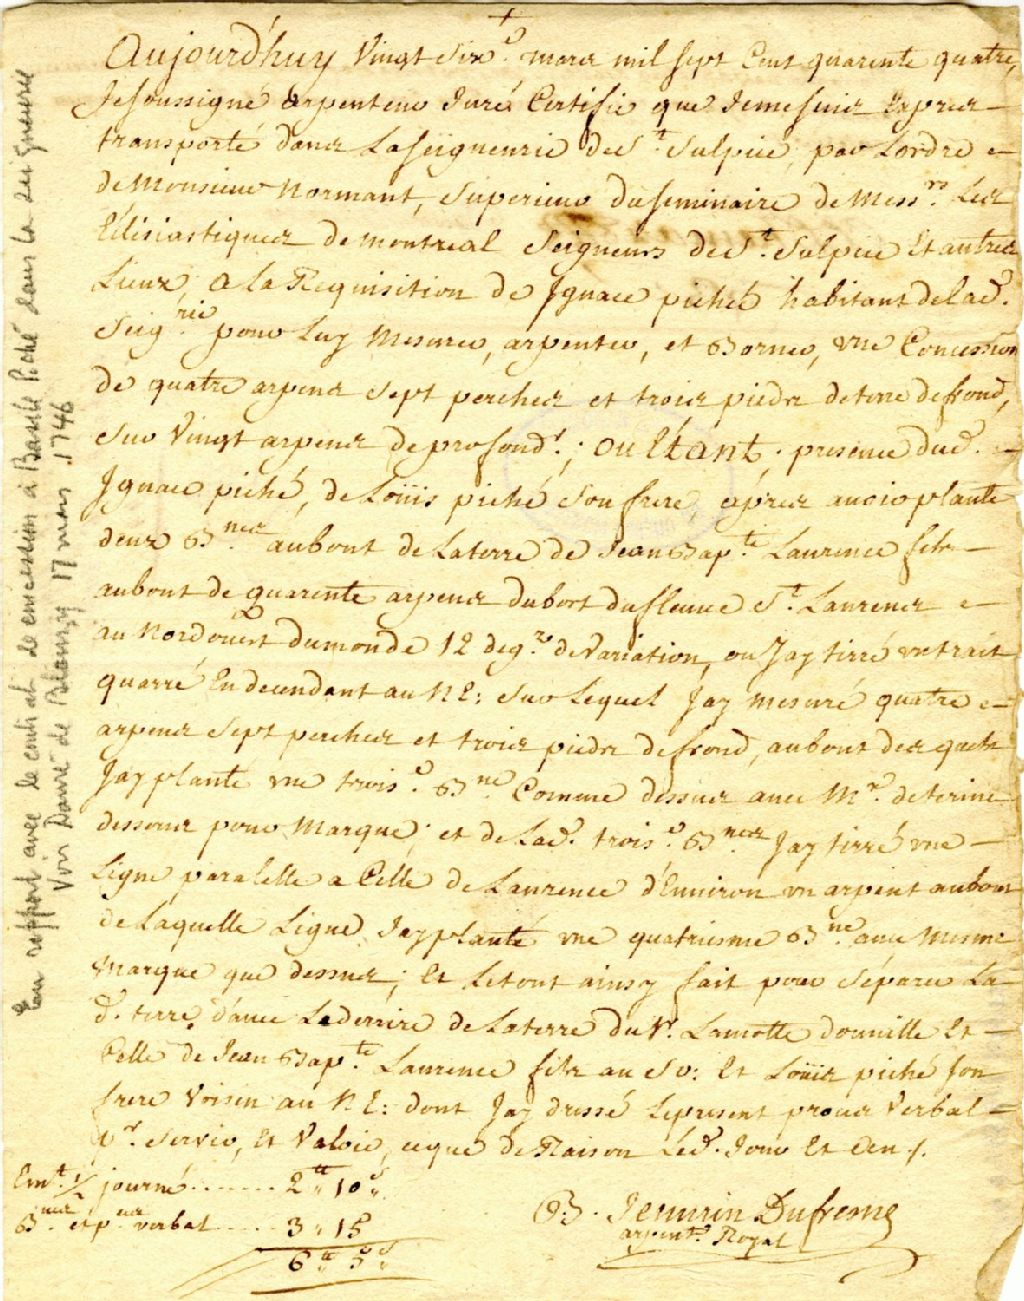 Aujourd'huy Vingt Six.e mars mil sept Cent quarente quatre,
Je soussigné arpenteur Juré Certifie que Je me suis Exprez
transporté dans La Seigneurie de St. Sulpice, par Lordre
de Monsieur Normant, Superieur du Seminaire de Messrs. Les
Eclésiastiques de montreal Seigneurs de St. Sulpice Et autres
Lieux, a la Requisition de Ignace piché habitant de lad.
Seigrie pour Luy Mesurer, arpenter, et Borner, vne Concession
de quatre arpens sept perches et trois pieds de terre de frond,
sur Vingt arpens de profondr; ou Etant, presence dud.
Ignace piché, de Loüis piché Son frere, aprez auoir planté
deux Bnes au bout de La terre de Jean Bapte. Laurence fils
au bout de quarente arpens du bort du fleuue St. Laurens
au Nord ouest du monde 12 degrz de Variation, ou Jay tirré vn trait
quarré En decendant au N E: sur Lequel Jay Mesuré quatre
arpens sept perches et trois pieds de frond, au bout des quels
Jay planté vne trois.e Bne. Comme dessus auec Mr. de terine
dessous pour Marque; et de Lad. trois.e Bnes. Jay tirré vne
Ligne paralelle a Celle de Laurence d'Enuiron vn arpent au bout
de Laquelle Ligne Jay planté vne quatriesme Bne. auec Mesme
Marque que dessus; Et Le tout ainsy fait pour Séparer La
d. terre, d'auec Le derrire de La terre du Sr. Lamotte douuille Et
Celle de Jean Bapte. Laurence fils au So: Et Loüis piché son
frere Voisin au N E: dont Jay dressé Le present procez Verbal
pr. Servir, Et Valoir, ce que de Raison Led. Jour Et An /.
Emt. 1/2 journé ....... 2tt 10s
Bnes et pces verbal ..... 3 " 15
6tt 5s
B. Jenurin Dufresne
arpentr. Royal
En rapport avec le contrat de concession à Basile Piché dans la Seigneurie
Voir Danré de Blanzy 17 mars 1746